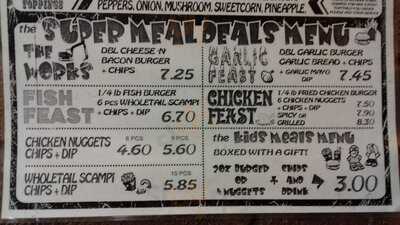 TOPPINGS
PEPPERS, ONION, MUSHROOM, SWEETCORN, PINEAPPLE,
the SUPER MEAL DEALS MENU
THE WORKS
DBL CHEESE-N
BACON BURGER
+ CHIPS
7.25
GARLIC FEAST
DBL GARLIC BURGER
GARLIC BREAD + CHIPS
+ GARLIC MAYO
DIP
7.45
FISH FEAST
1/4 lb FISH BURGER
6 pcs WHOLETAIL SCAMPI
+ CHIPS + DIP
6.70
CHICKEN FEAST
1/4 lb FRIED CHICKEN BURGER
6 CHICKEN NUGGETS
+ CHIPS + DIP 7.50
SPICY OR 7.90
GRILLED 8.30
CHICKEN NUGGETS
CHIPS + DIP
6 PCS 9 PCS
4.60 5.60
WHOLETAIL SCAMPI
CHIPS + DIP
10 PCS
5.85
the Kids MEALS MENU
BOXED WITH A GIFT!
2oz BURGER CHIPS
OR + AND
4 NUGGETS DRINK
3.00